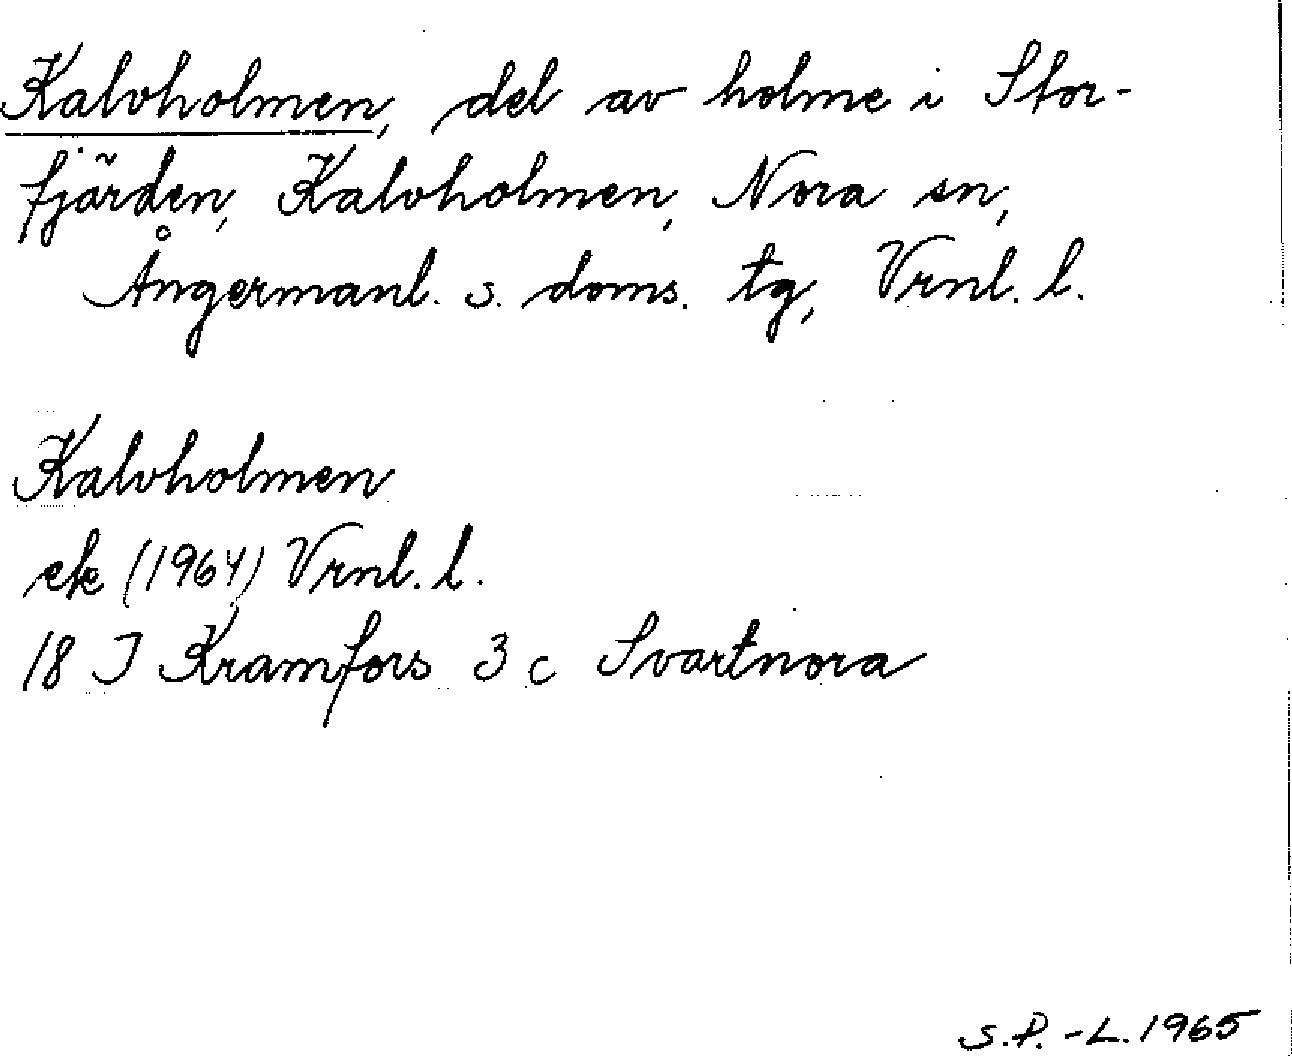 Kalvholmen, del av holme i Stor-
fjärden, Kalvholmen, Nora sn,
Ångermanl. s. doms. tg, Vrnl. l.
Kalvholmen
ek (1964) Vrnl. l.
18 J Kramfors 3 c Svartnora
S.P.-L. 1965